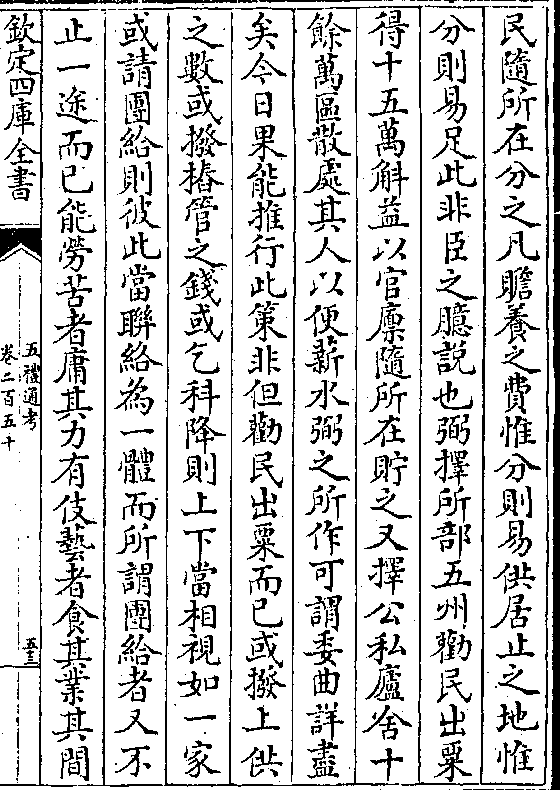 民隨所在分之凡贍養之費惟分則易供居止之地惟
分則易足此非臣之臆説也弼擇所部五州勸民出粟
得十五萬斛益以官廪隨所在貯之又擇公私廬舍十
餘萬區散處其人以便薪水弼之所作可謂委曲詳盡
矣今日果能推行此策非但勸民出粟而已或撥上供
之數或撥樁管之錢或乞科降則上下當相視如一家
或請團給則彼此當聯絡為一體而所謂團給者又不
止一途而已能勞苦者庸其力有伎藝者食其業其間
欽定四庫全書
五禮通考
卷二百五十
五三